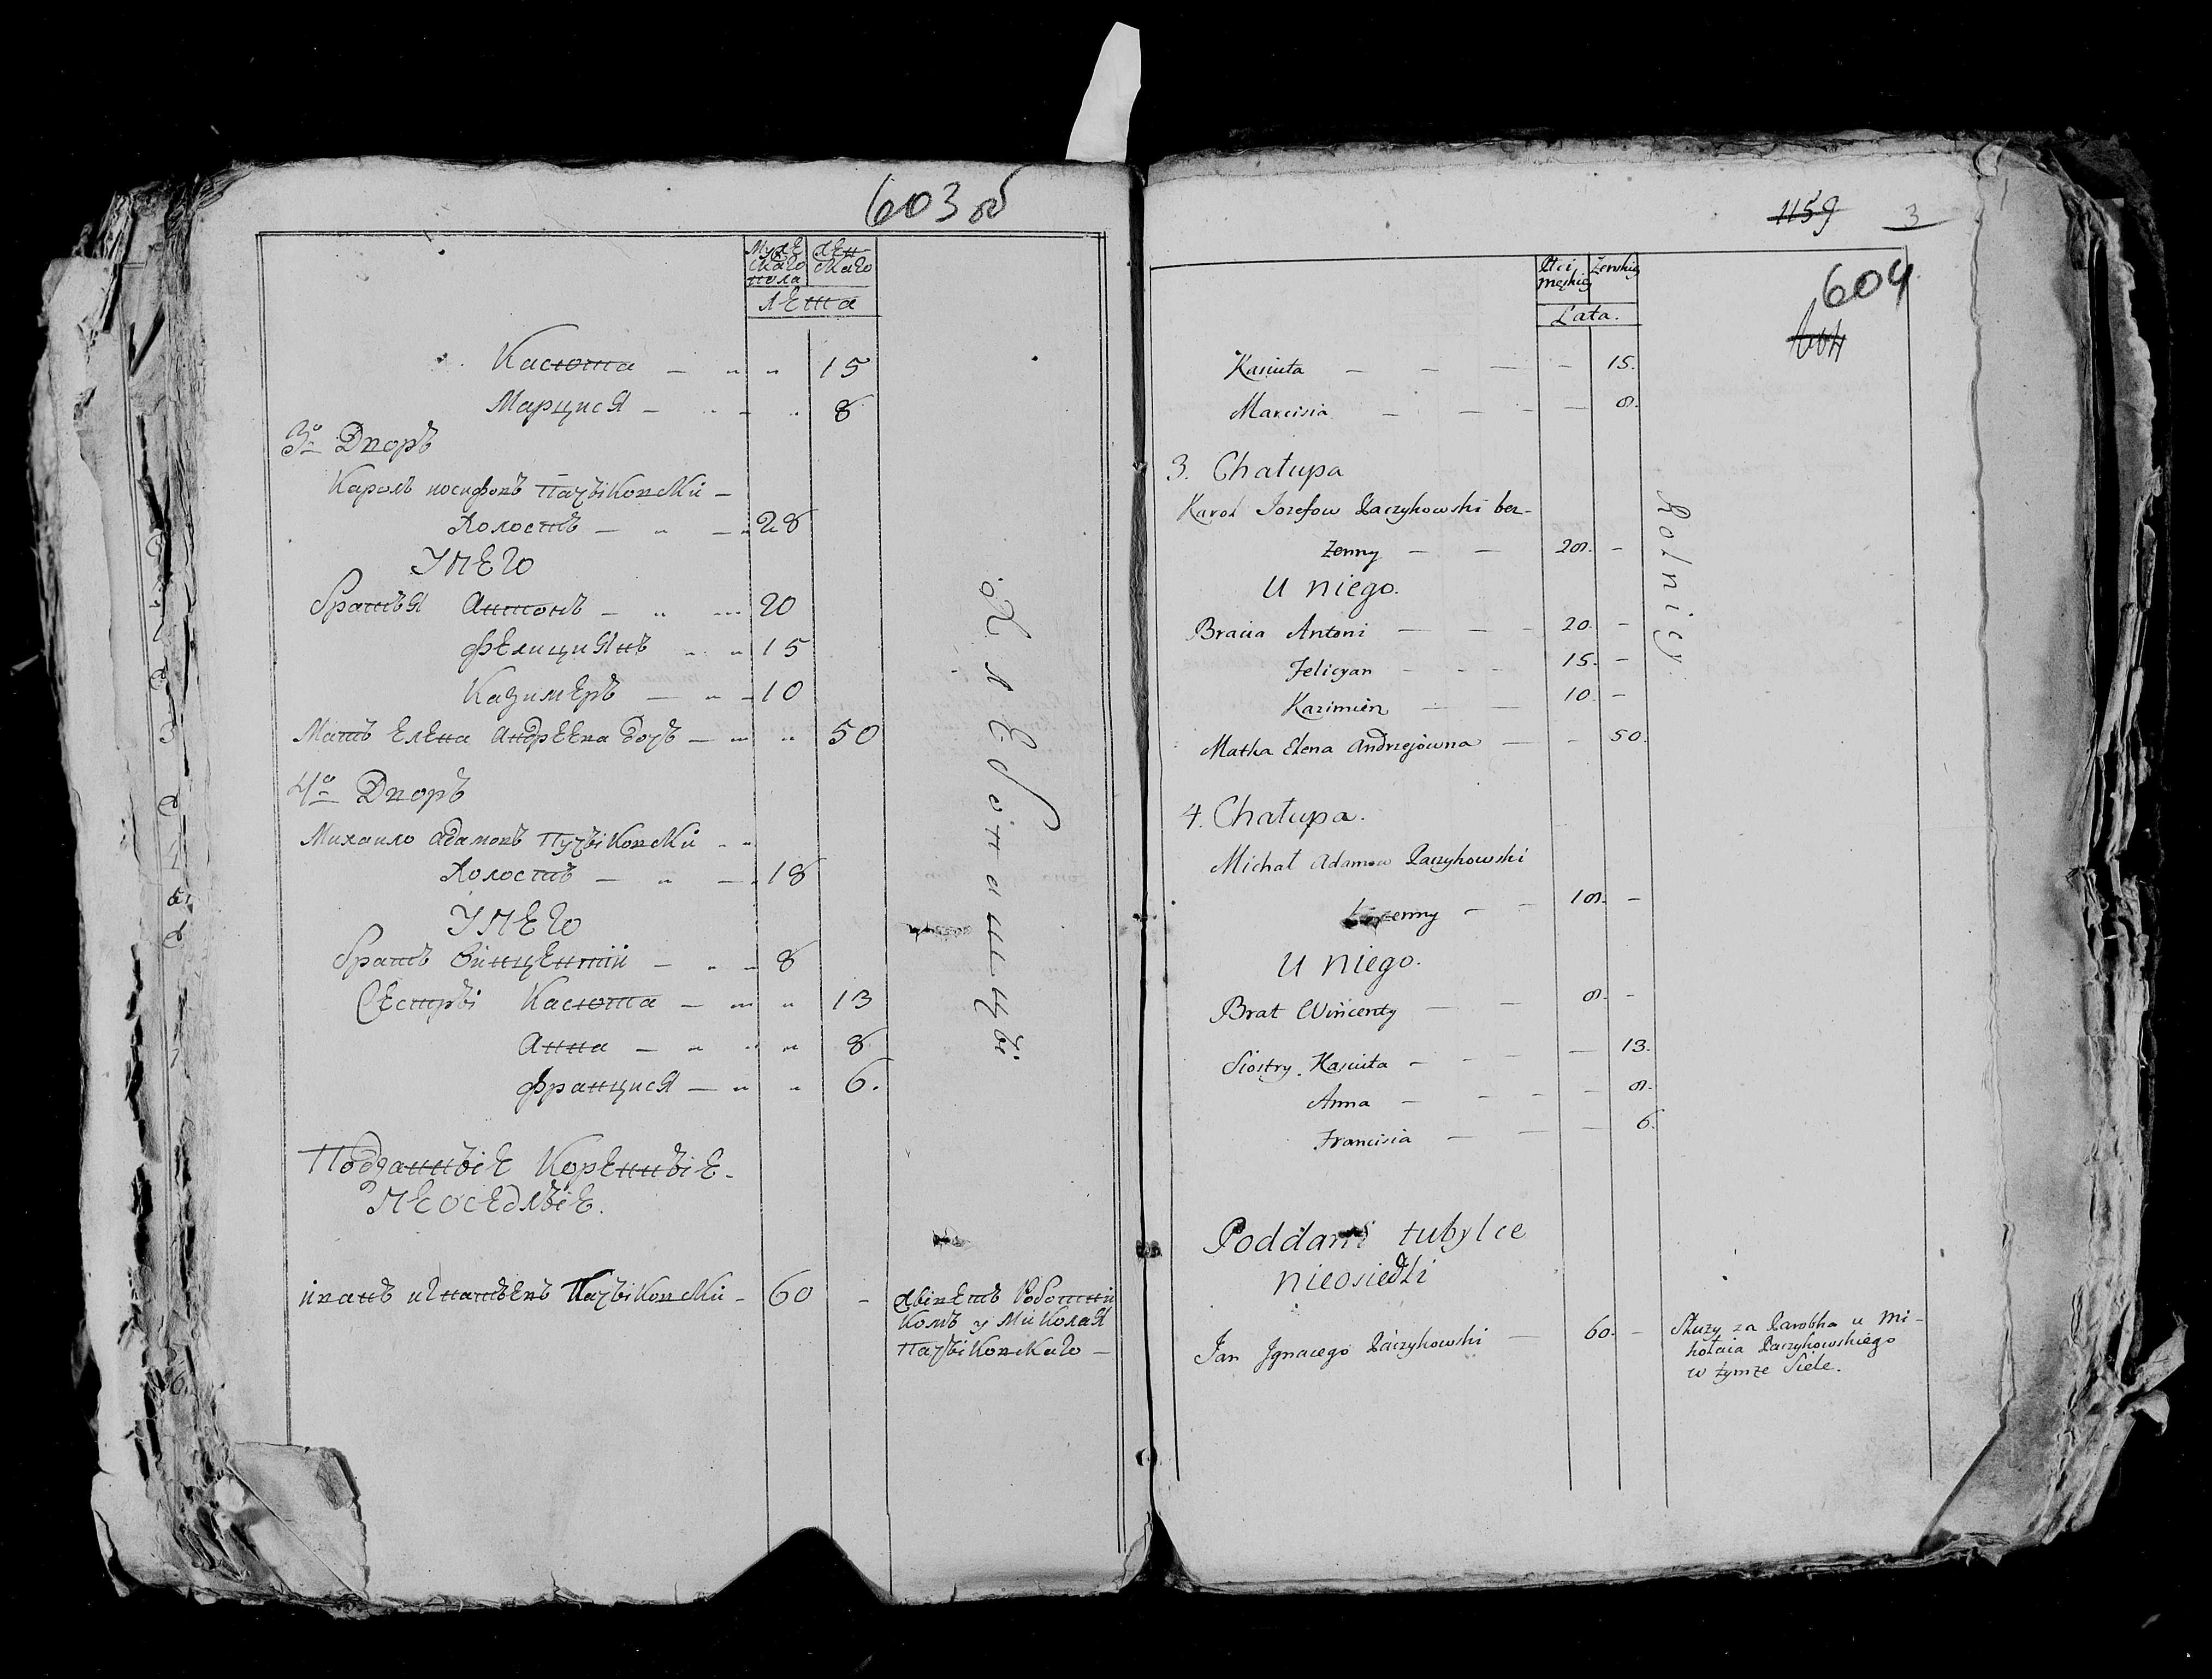 603 об
Мужескаго пола
Женскаго
Лета
Касюта 15
Марцися 8
3º Дворъ
Кароль иосифовъ Пачыковски
Холостъ 28
У НЕГО
Братья Антонъ 20
Фелициянъ 15
Казимеръ 10
Мать Елена Андреева дочь 50
4º Дворъ
Михаило адамовъ Пачыковски
Холостъ 18
У НЕГО
Братъ Винцентий 8
Сестры Касюта 13
Анна 8
Францися 6.
Подданные Коренные
неоседлые.
иванъ игнатьевъ Пачыковски 60 -
живетъ Работни
комъ у Миколая
Пачыковскаго
Хлебопашцы
1159 3
604
604
Płci męskiey
Zenskiey
Lata.
Kasiuta 15.
Marcisia 8.
3. Chałupa
Karol Jozefow Paczykowski bez-
żenny 28. -
U niego.
Bracia Antoni 20. -
Felicyan 15. -
Kazimierz 10. -
Matka Elena Andrzejowna 50.
4. Chałupa.
Michał Adamow Paczykowski
bezżenny 18. -
U niego.
Brat Wincenty 8. -
Siostry. Kasiuta 13.
Anna 8.
Francisia 6.
Poddani tubylce
nieosiedli
Jan Jgnacego Paczykowski 60. -
Służy za Parobka u Mi-
kołaia Paczykowskiego
w tymże Siele.
Rolnicy.